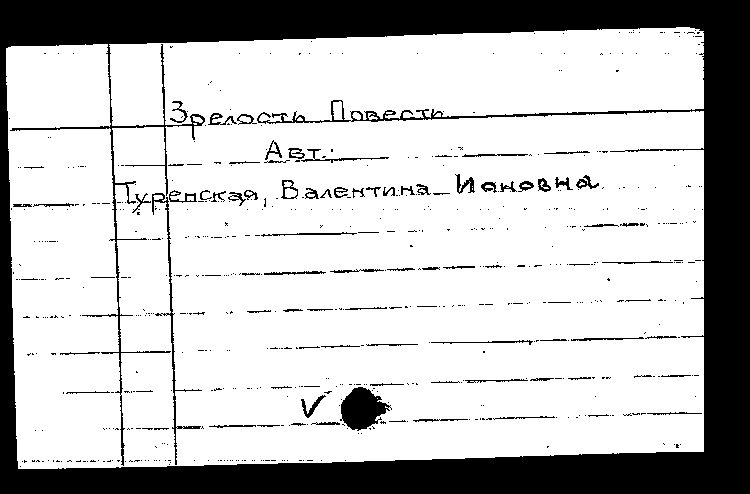 Зрелость Повести
Авт.:
Туренская, Валентина Ионовна
V